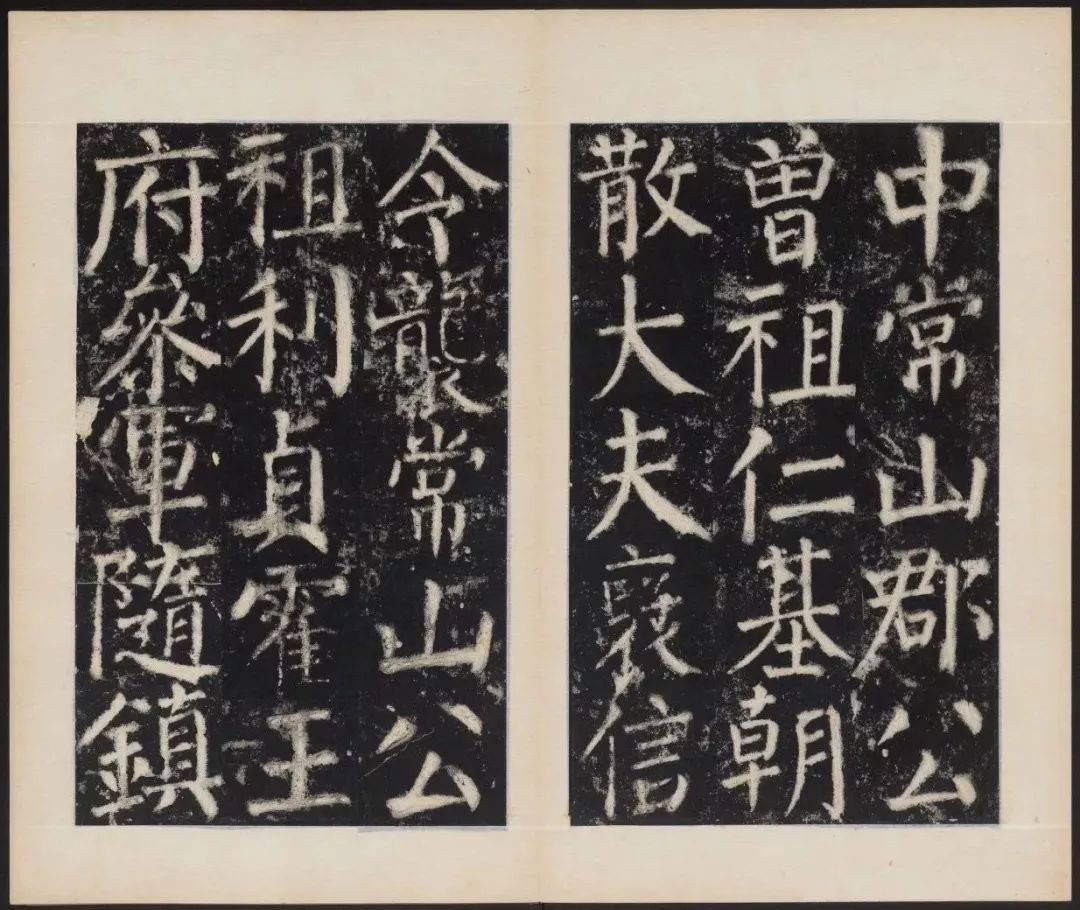 中常山郡公
曾祖仁基朝
散大夫襃信
令襲常山公
祖利貞霍王
府參軍隨鎮